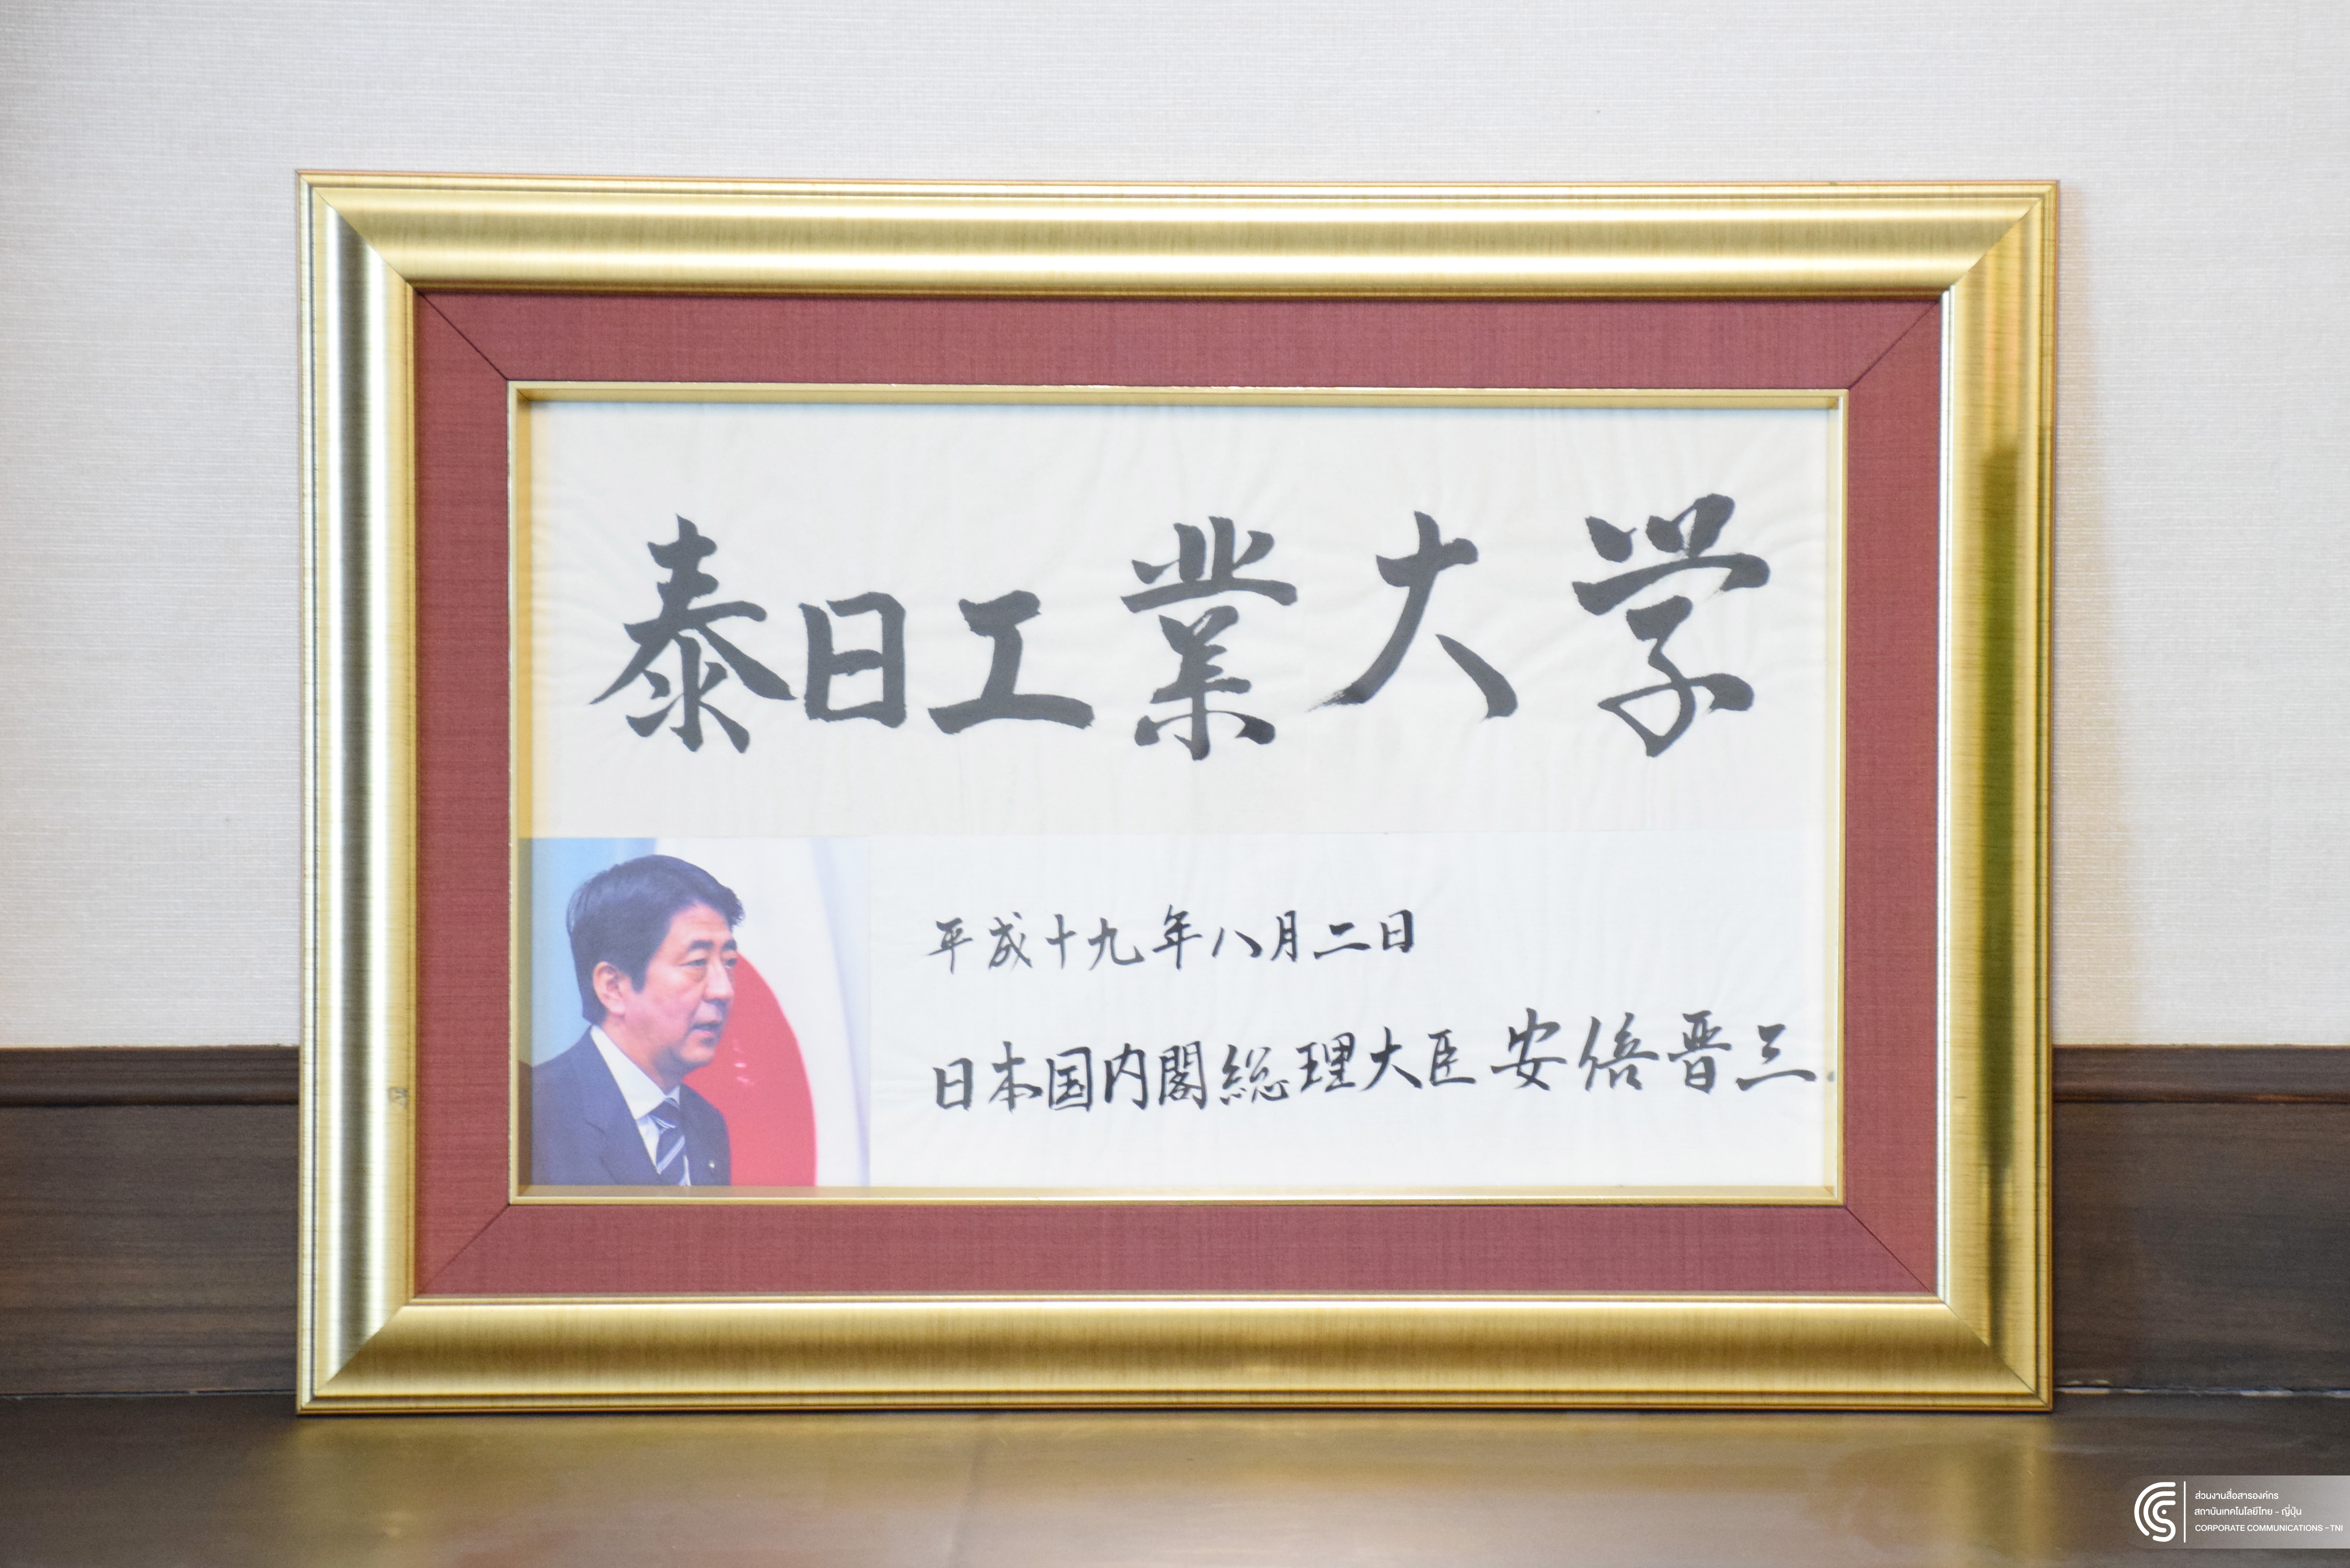 泰日工業大学
平成十九年八月二日
日本国内閣総理大臣 安倍晋三
ส่วนงานสื่อสารองค์กร
สถาบันเทคโนโลยีไทย - ญี่ปุ่น
CORPORATE COMMUNICATIONS - TNI